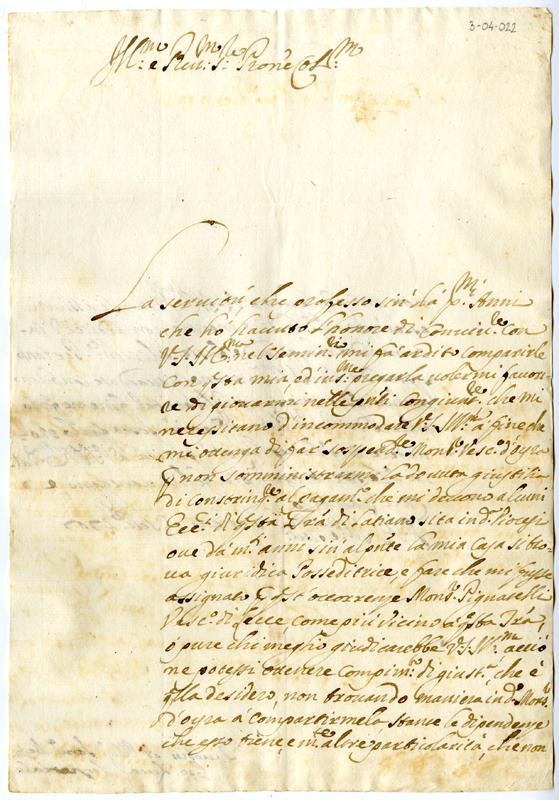 3-04-022
Ill:mo e Rev:mo Sig:re Prone Col:mo
La servitù che professo sin da p:mi Anni
che hò havuto l'honore di convivere con
V.S. Ill:ma nel Semin:o mi fà ardito comparirle
con q̃sta mia, ed ins:me pregarla volermi favori-
re di giovarmi nelle p̃nti congiunt:e che mi
necessitano d'incommodare V.S. Ill:ma a fine che
mi ottenga di far sospend:e Mons:r Vesc:o d'oyra
non somministrarmi la dovuta giustitia
di constringere al pagam:to che mi devono alcuni
Ecc:i di q̃sta Trà di Latiano sita in d:a Diocesi
ove da m:ti anni sin' al p̃nte la mia Casa si tro-
va giuridica Posseditrice, e fare che mi fusse
assignato p d:e occorrenze Mons:r Pignatelli
Vesc:o di Lecce come più vicino a q̃sta Trà,
ò pure chi meglio giudicarebbe V.S. Ill:ma acciò
ne potessi ottenere compim:to di giust:a, che è
q̃lla desidero, non trovando maniera in d:o Mons:r
d'oyra à compartirmela stante le dipendenze
che esso tiene, e m:te altre particolarità, che non